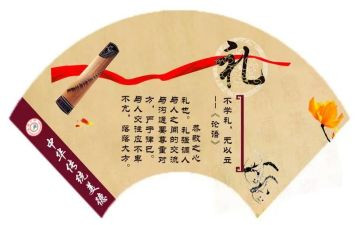 礼
不学礼，无以立
——《论语》
恭敬之心
礼也。礼强调人
与人之间的交流
与沟通要尊重对
方，严于律己。
与人交往应不卑
不亢，落落大方。
中华传统美德